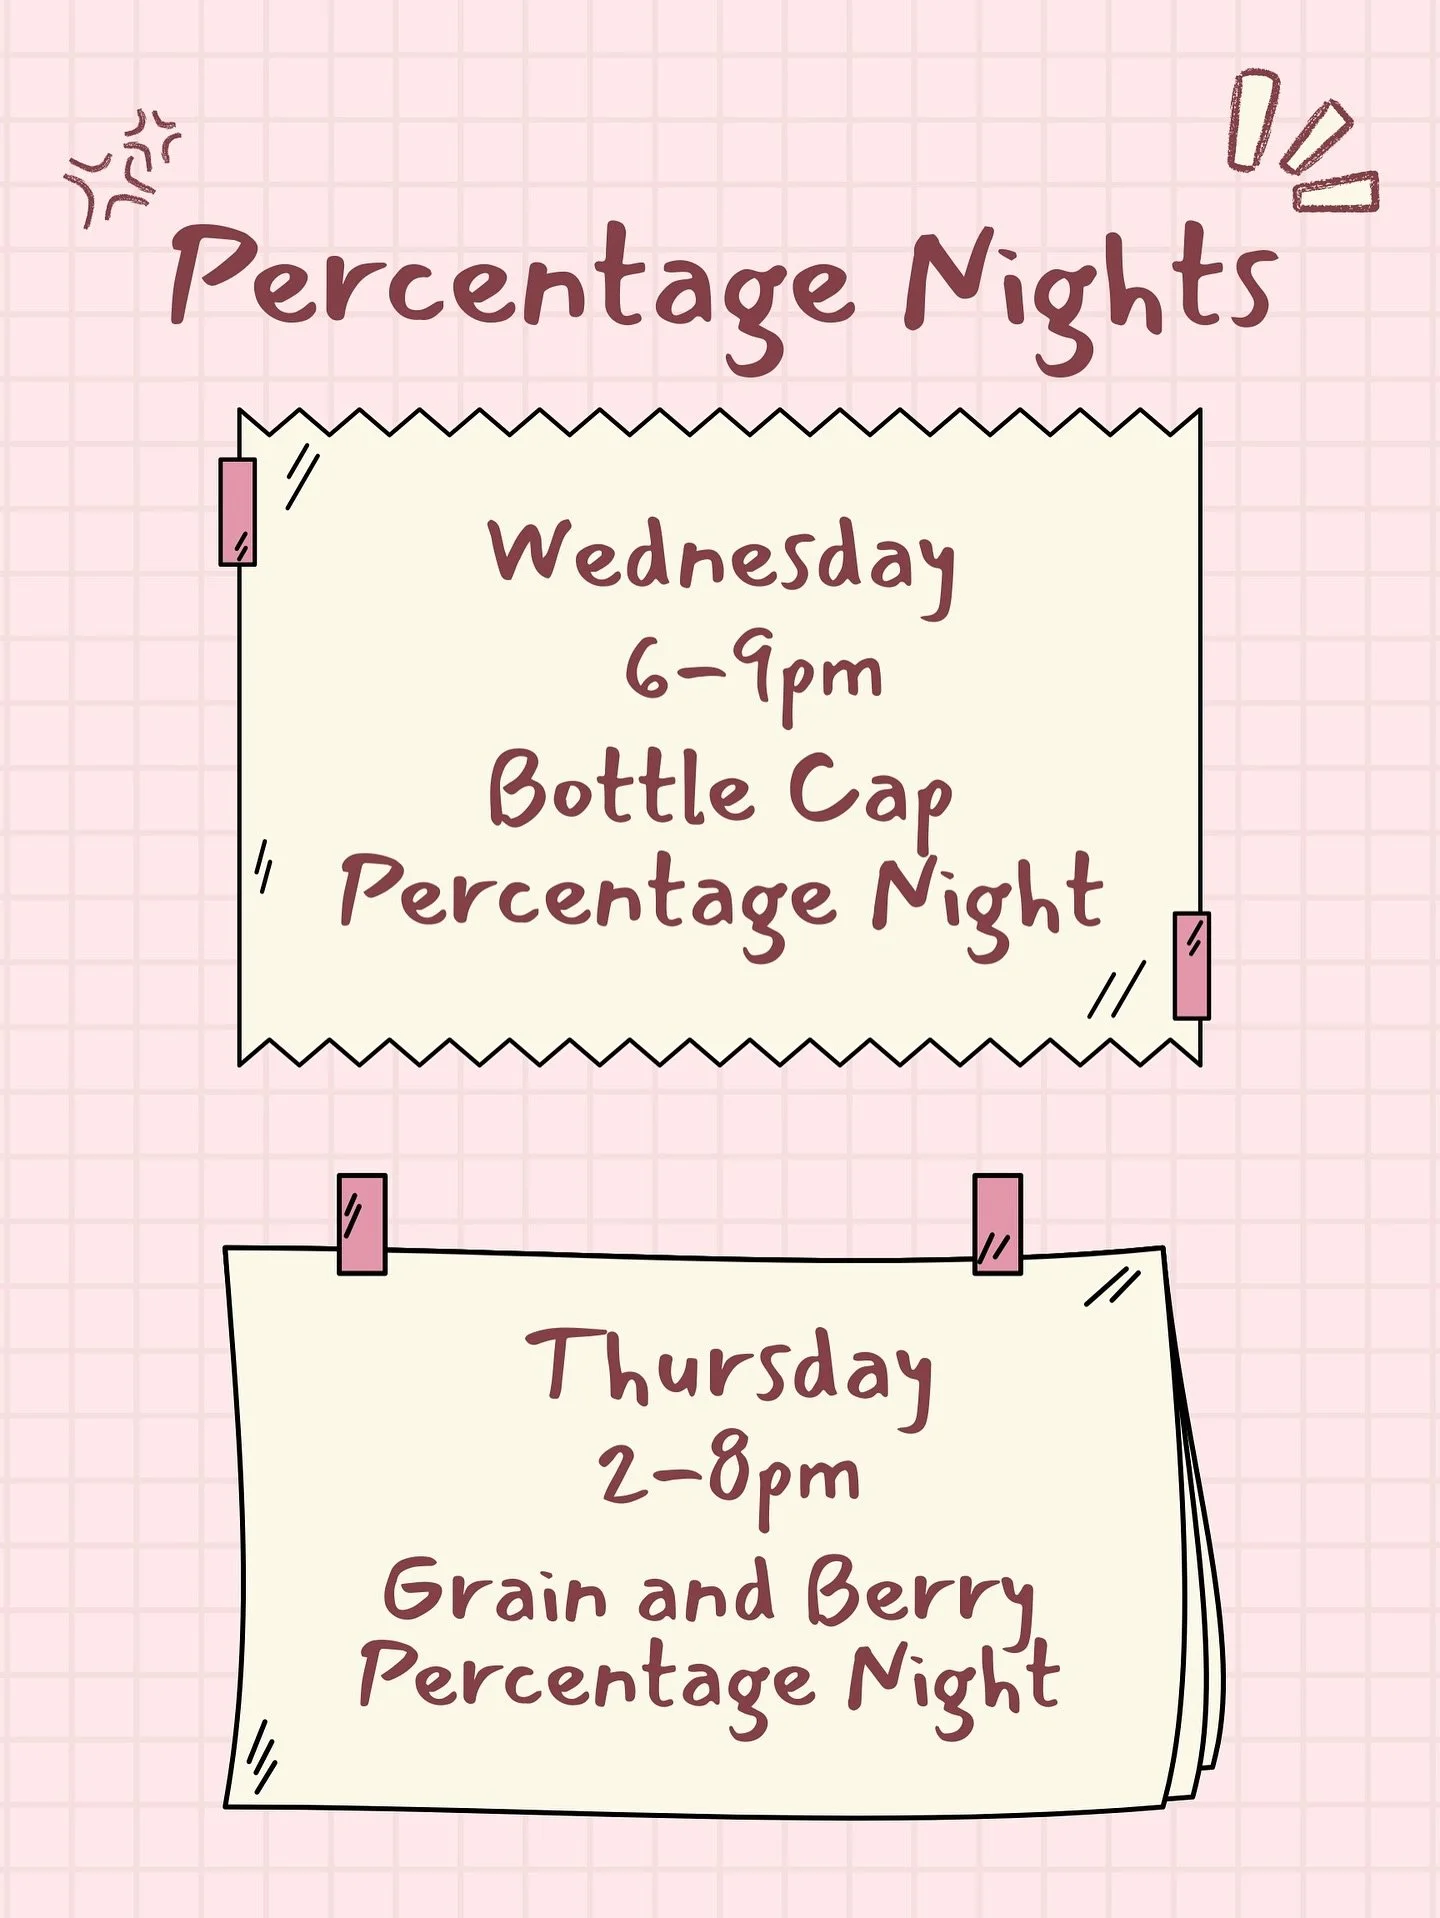 Percentage Nights
Wednesday
6-9pm
Bottle Cap
Percentage Night
Thursday
2-8pm
Grain and Berry
Percentage Night